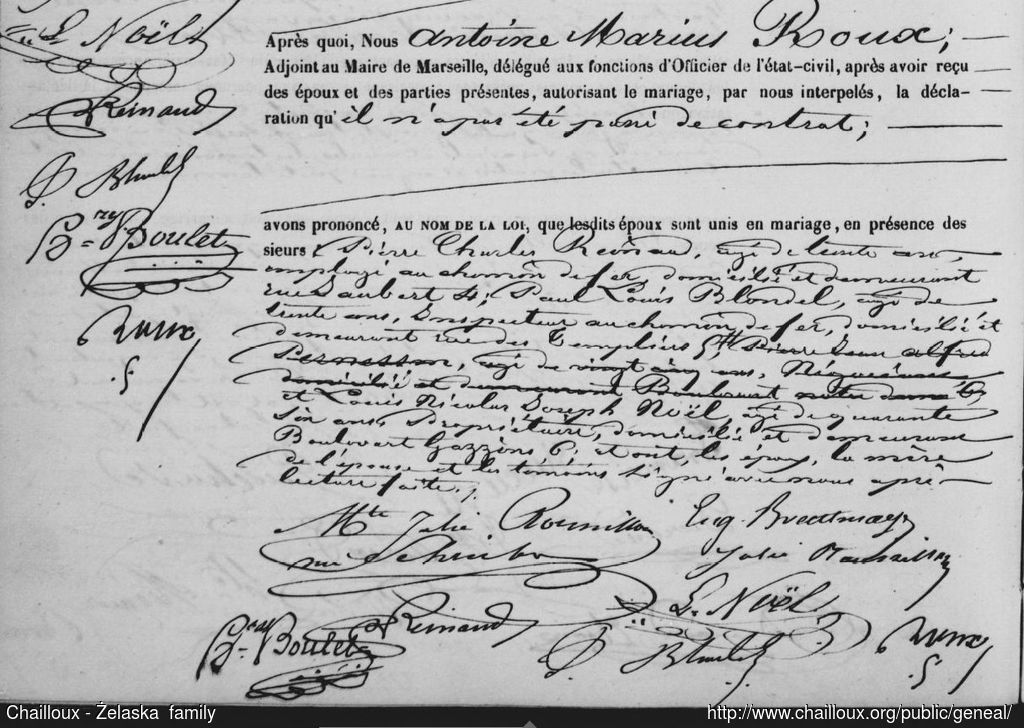 L. Noël
Reinaud
P. Blondel
Boulet
Roux
Après quoi, Nous Antoine Marius Roux;
Adjoint au Maire de Marseille, délégué aux fonctions d'Officier de l'état-civil, après avoir reçu
des époux et des parties présentes, autorisant le mariage, par nous interpelés, la décla-
ration qu'il n'a pas été passé de contrat;
avons prononcé, AU NOM DE LA LOI, que lesdits époux sont unis en mariage, en présence des
sieurs Pierre Charles Reinaud, agé de trente ans,
employé au chemin de fer, domicilié et demeurant
rue 4; Paul Louis Blondel, agé de
trente ans, Inspecteur au chemin de fer, domicilié et
demeurant rue des Templiers Pierre Jean Alfred
agé de vingt cinq ans, Négociant
domicilié et demeurant Boulevart notre dame
et Louis Nicolas Joseph Noël, agé de quarante
six ans, Propriétaire, domicilié et demeurant
Boulevart Gazzino, 6; et ont les époux, la mère
de l'épouse et les témoins signé avec nous après
lecture faite.
Mte Julie Roumillon
née
Julie Roumillon
L. Noël
Reinaud
Boulet
P. Blondel
Roux
Chailloux - Żelaska family
http://www.chailloux.org/public/geneal/